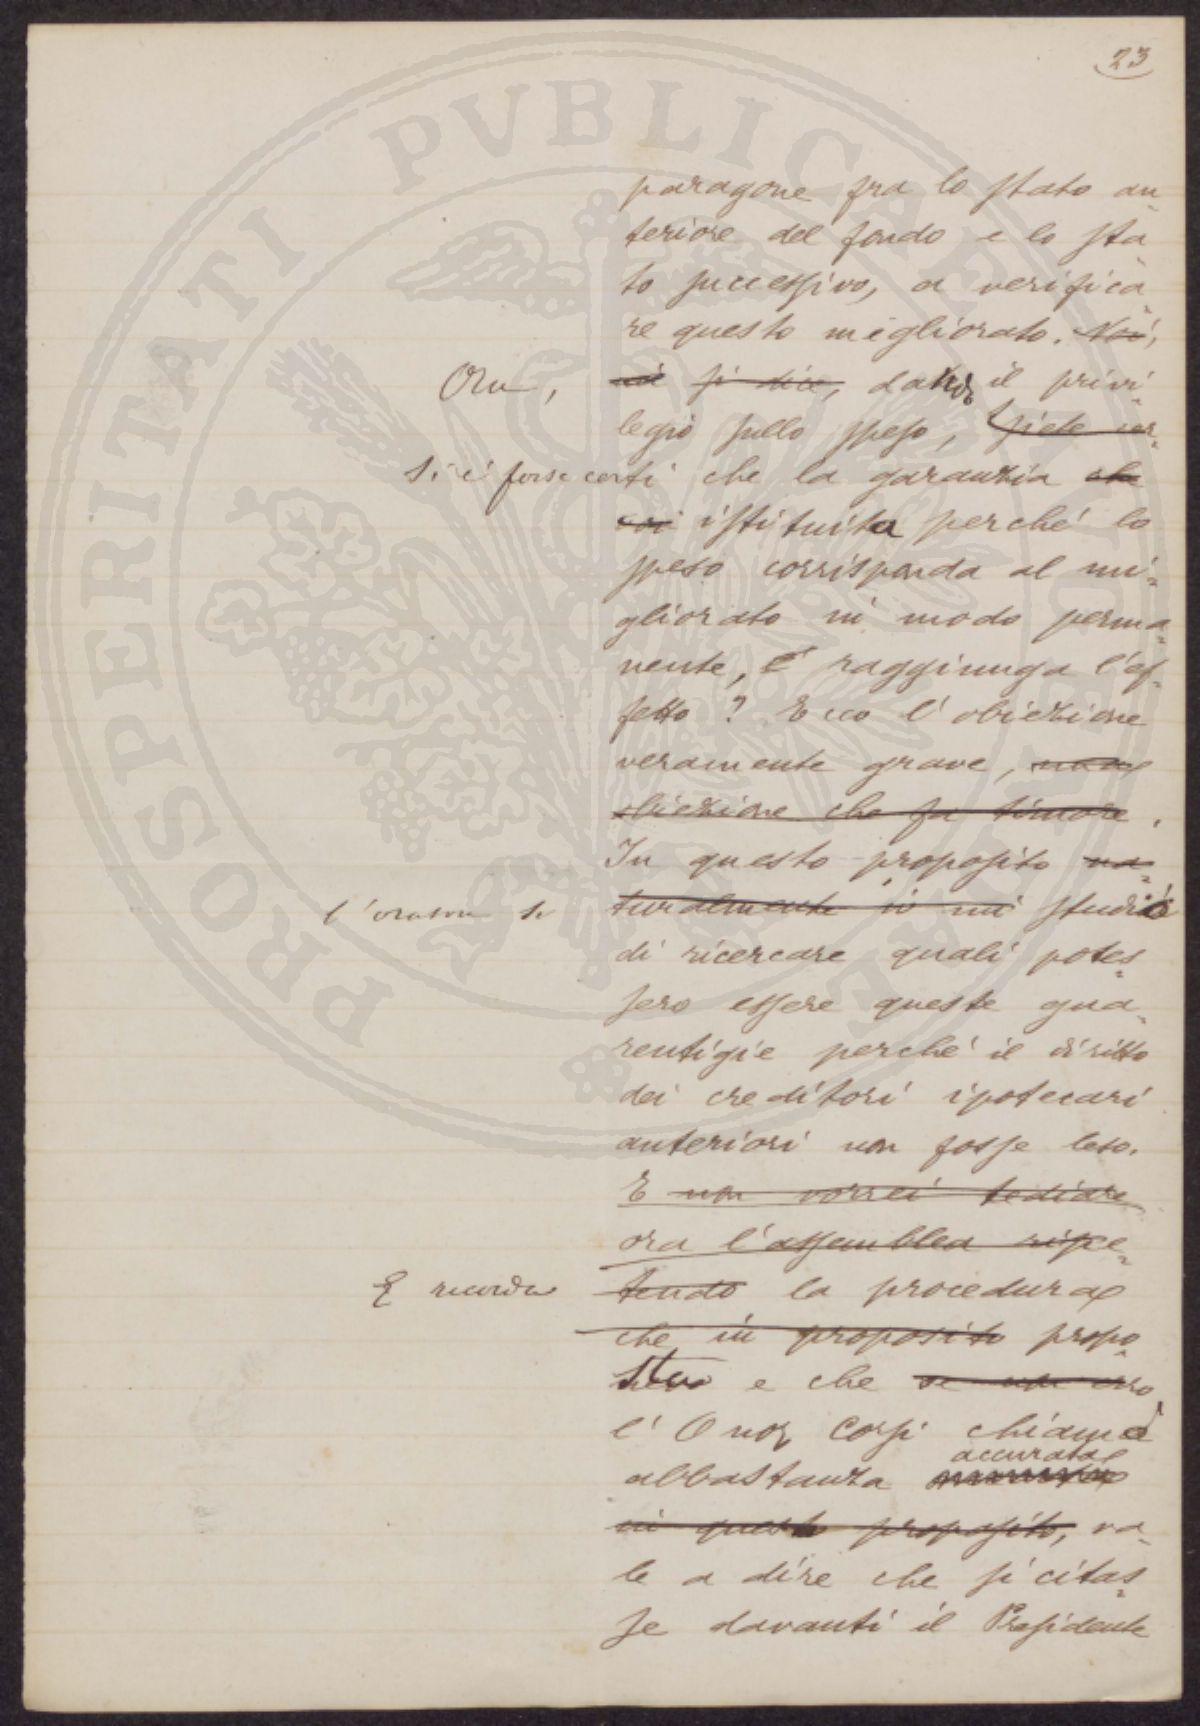 23
PROSPERITATI PVBLICAE
paragone fra lo stato an-
teriore del fondo e lo sta-
to successivo, a verifica-
re questo migliorato. Voi,
Ora, si dice, dando il privi-
legio sullo speso, siete cer-
Si è forse certi che la garanzia che
voi istituita perché lo
speso corrisponda al mi-
gliorato in modo perma-
nente, raggiunga l'ef-
fetto? Ecco l'obiezione
veramente grave,
obiezione che fa timore.
In questo proposito na-
l'oratore si turalmente io mi studiò
di ricercare quali potes-
sero essere queste gua-
rentigie perché il diritto
dei creditori ipotecari
anteriori non fosse leso.
E non vorrei tediare
ora l'assemblea ripe-
E ricorda tendo la procedura
che in proposito propo-
sta e che se non erro
l'Onor Corsi chiamò
accurata
abbastanza
in questo proposito, va-
le a dire che si citas-
se davanti il Presidente